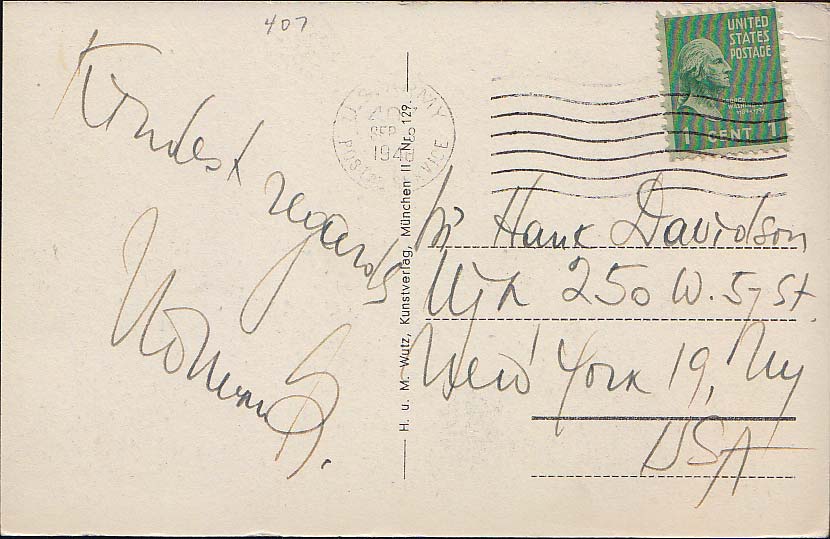 407
Kindest
regards
U.S. ARMY
SEP
POSTAL SERVICE
UNITED
STATES
POSTAGE
GEORGE
WASHINGTON
1 CENT 1
H. u. M. Wutz, Kunstverlag, München II Nr. 129.
Hank Davidson
250 W. 57 St.
New York 19, Ny
USA